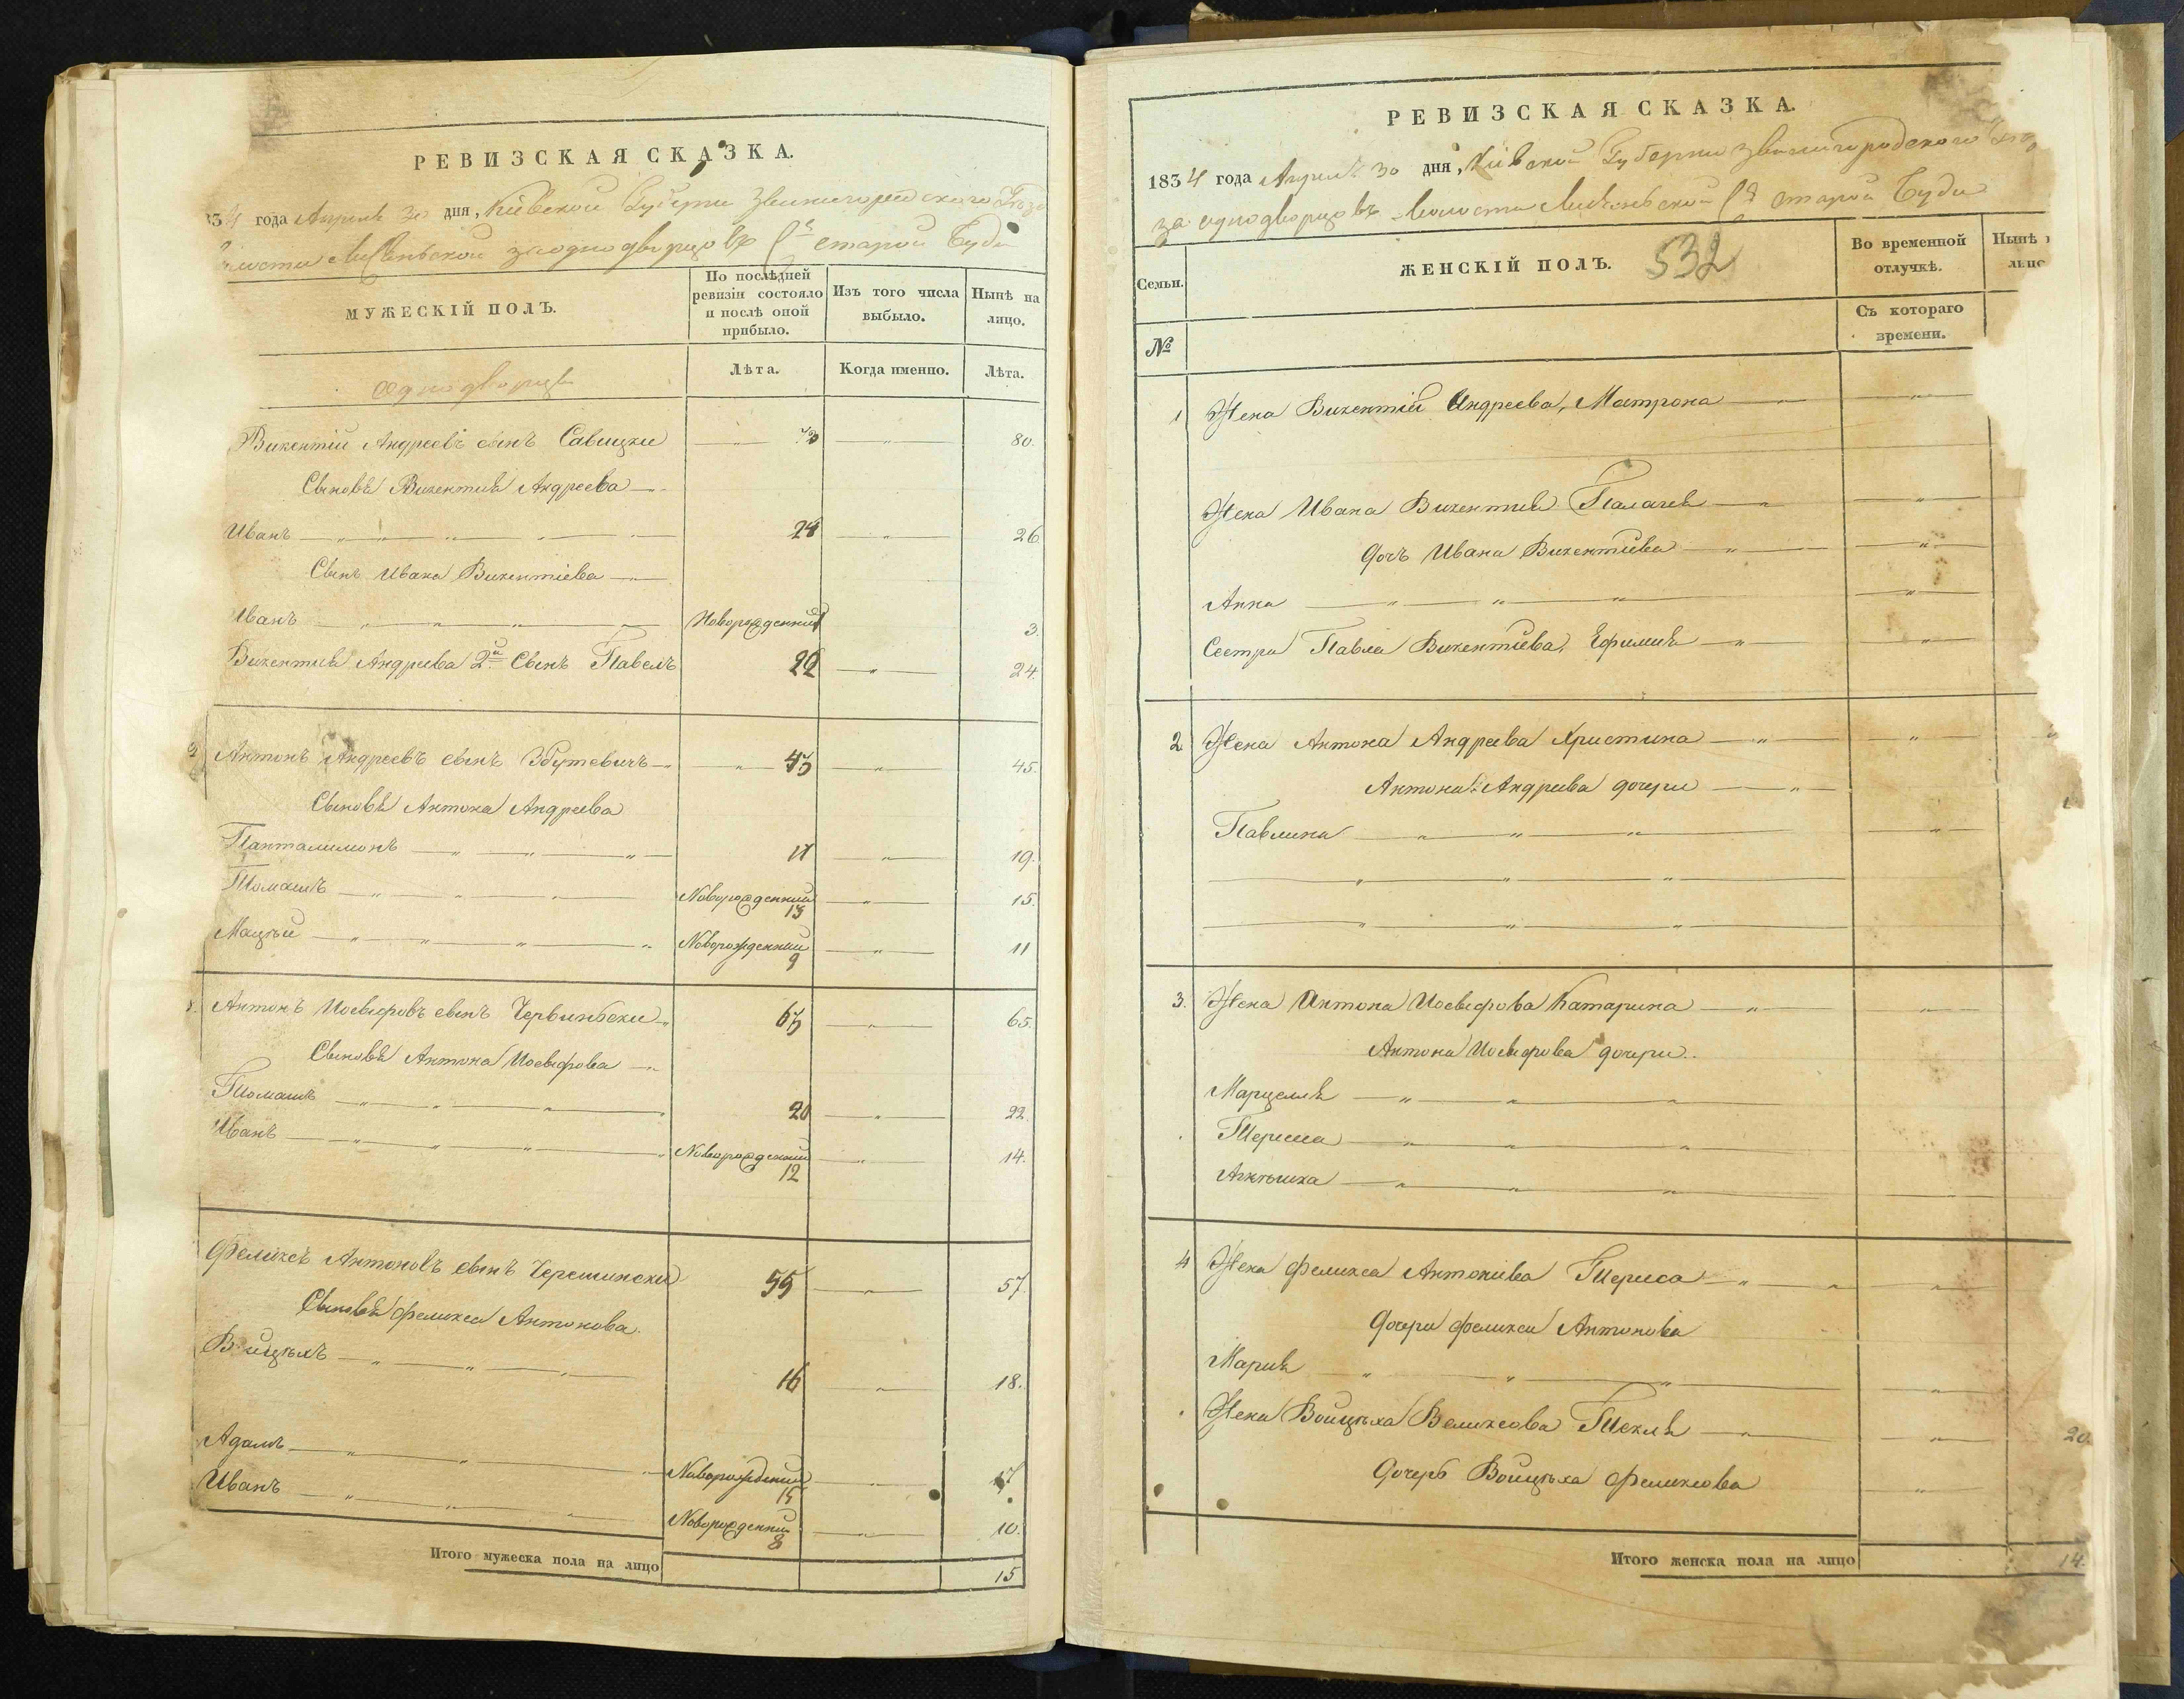 РЕВИЗСКАЯ СКАЗКА.
34 года Апреля 30 дня, Кіевской Губерни Звенигородского Уѣз
за однодворцовъ старой Буди
МУЖЕСКІЙ ПОЛЪ.
По послѣдней ревизіи состояло и послѣ оной прибыло.
Изъ того числа выбыло.
Нынѣ на лицо.
Лѣта.
Когда именно.
Лѣта.
однодворцы
Викентій Андреевъ сынъ Савицки 80.
Сыновья Викентия Андреева
Иванъ 26
Сынъ Ивана Викентіева
Иванъ Новорожденный 3.
Викентия Андреева 2й Сынъ Павелъ 22 24.
2 Антонъ Андреевъ сынъ Збутевичъ 43 45.
Сыновья Антона Андреева
Панталимонъ 17 19.
Томашъ Новорожденний 13 15.
Мацѣй Новорожденний 9 11
Антонъ Иосыфовъ сынъ Червинбски 63 65.
Сыновья Антона Иосыфова
Томашъ 20 22.
Иванъ Новорожденний 12 14.
Феликсъ Антоновъ сынъ Черешински 55 57.
Сыновья Феликса Антонова.
Войцѣхъ 16 18.
Адамъ Новорожденний 15 17
Иванъ Новорожденний 8 10.
Итого мужеска пола на лицо 15
РЕВИЗСКАЯ СКАЗКА.
1834 года Апреля 30 дня, Кіивской Губерни Звенигородского
за однодворцовъ Волости старой Буди
Семьи.
ЖЕНСКІЙ ПОЛЪ. 532
Во временной отлучкѣ.
Нынѣ
№
Съ котораго времени.
1 Жена Викентій Андреева, Матрона
Жена Ивана Викентия Палагея
Дочь Ивана Викентиева
Анна
Сестра Павла Викентіева, Ефимия
2 Жена Антона Андреева Христина
Антона Андреева дочери
Павлина
3. Жена Антона Иосыфова Катарина
Антона Иосыфова дочери..
Марцеля
Тереса
Агнѣшка
4 Жена Феликса Антониева Тереса
Дочери Феликса Антонова
Мария
Жена Войцѣха Феликсова Текля 20.
Дочерь Войцѣха Феликсова
Итого женска пола на лицо 14.